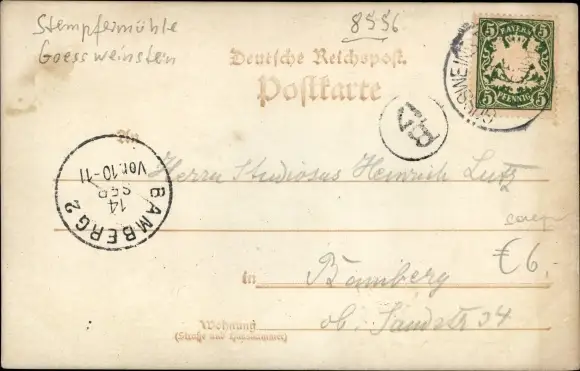 Stempfermühle
Goessweinstein
8556
Deutsche Reichspost.
Postkarte
BAYERN
5 5
5 5
PFENNIG
An
Herrn Studiosus Heinrich Lutz
BAMBERG 2
14
SEP
Vor. 10-11
€ 6.
in Bamberg
Wohnung
(Straße und Hausnummer)
ob. Sandstr 34